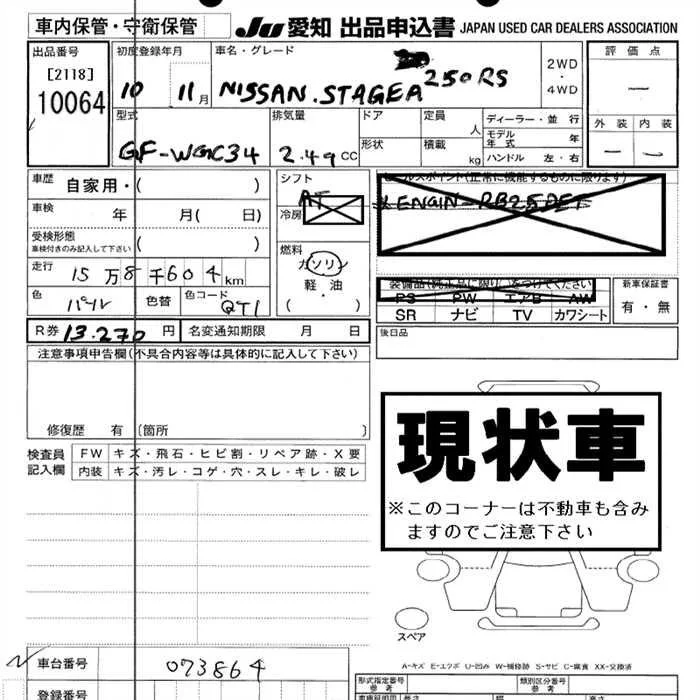 車内保管・守衛保管
JU 愛知 出品申込書 JAPAN USED CAR DEALERS ASSOCIATION
出品番号
[2118]
10064
初度登録年月
10 11月
車名・グレード
NISSAN.STAGEA 250RS
2WD
・
4WD
評価点
—
外装 内装
— —
型式
GF-WGC34
排気量
2.49cc
ドア
形状
定員
人
積載
kg
ディーラー・並行
モデル年式 年
ハンドル 左・右
車歴 自家用・( )
車検 年 月( 日)
受検形態
車検付きのみ記入して下さい ( )
走行 15万8千604km
色 パール 色替 色コード QT1
シフト
AT
冷房
燃料
ガソリン
軽・油
( )
セールスポイント(正常に機能するものに限ります)
ENGIN-RB25DET
装備品(純正品に限り)をつけてください
PS PW エアB AW
SR ナビ TV カワシート
新車保証書
有・無
R券 13.270 円 名変通知期限 月 日
後日品
注意事項申告欄(不具合内容等は具体的に記入して下さい)
修復歴 有 〔箇所 〕
検査員
記入欄
FW キズ・飛石・ヒビ割・リペア跡・X要
内装 キズ・汚レ・コゲ・穴・スレ・キレ・破レ
現状車
※このコーナーは不動車も含み
ますのでご注意下さい
スペア
A-キズ E-エクボ U-凹み W-補修跡 S-サビ C-腐食 XX-交換済
車台番号 073864
登録番号
形式指定番号
参考
類別区分番号
参考
長さ
幅
高さ